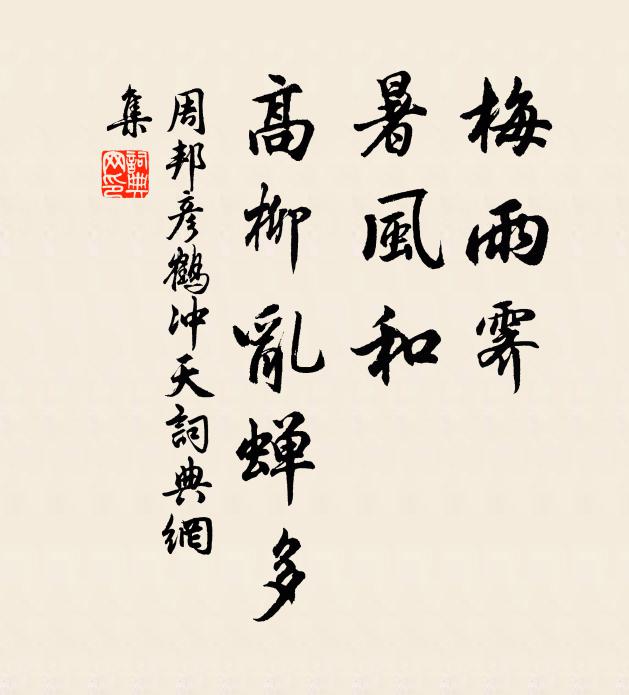 梅雨霽
暑風和
高柳亂蝉多
周邦彦鶴冲天詞典網
集
詞典網印